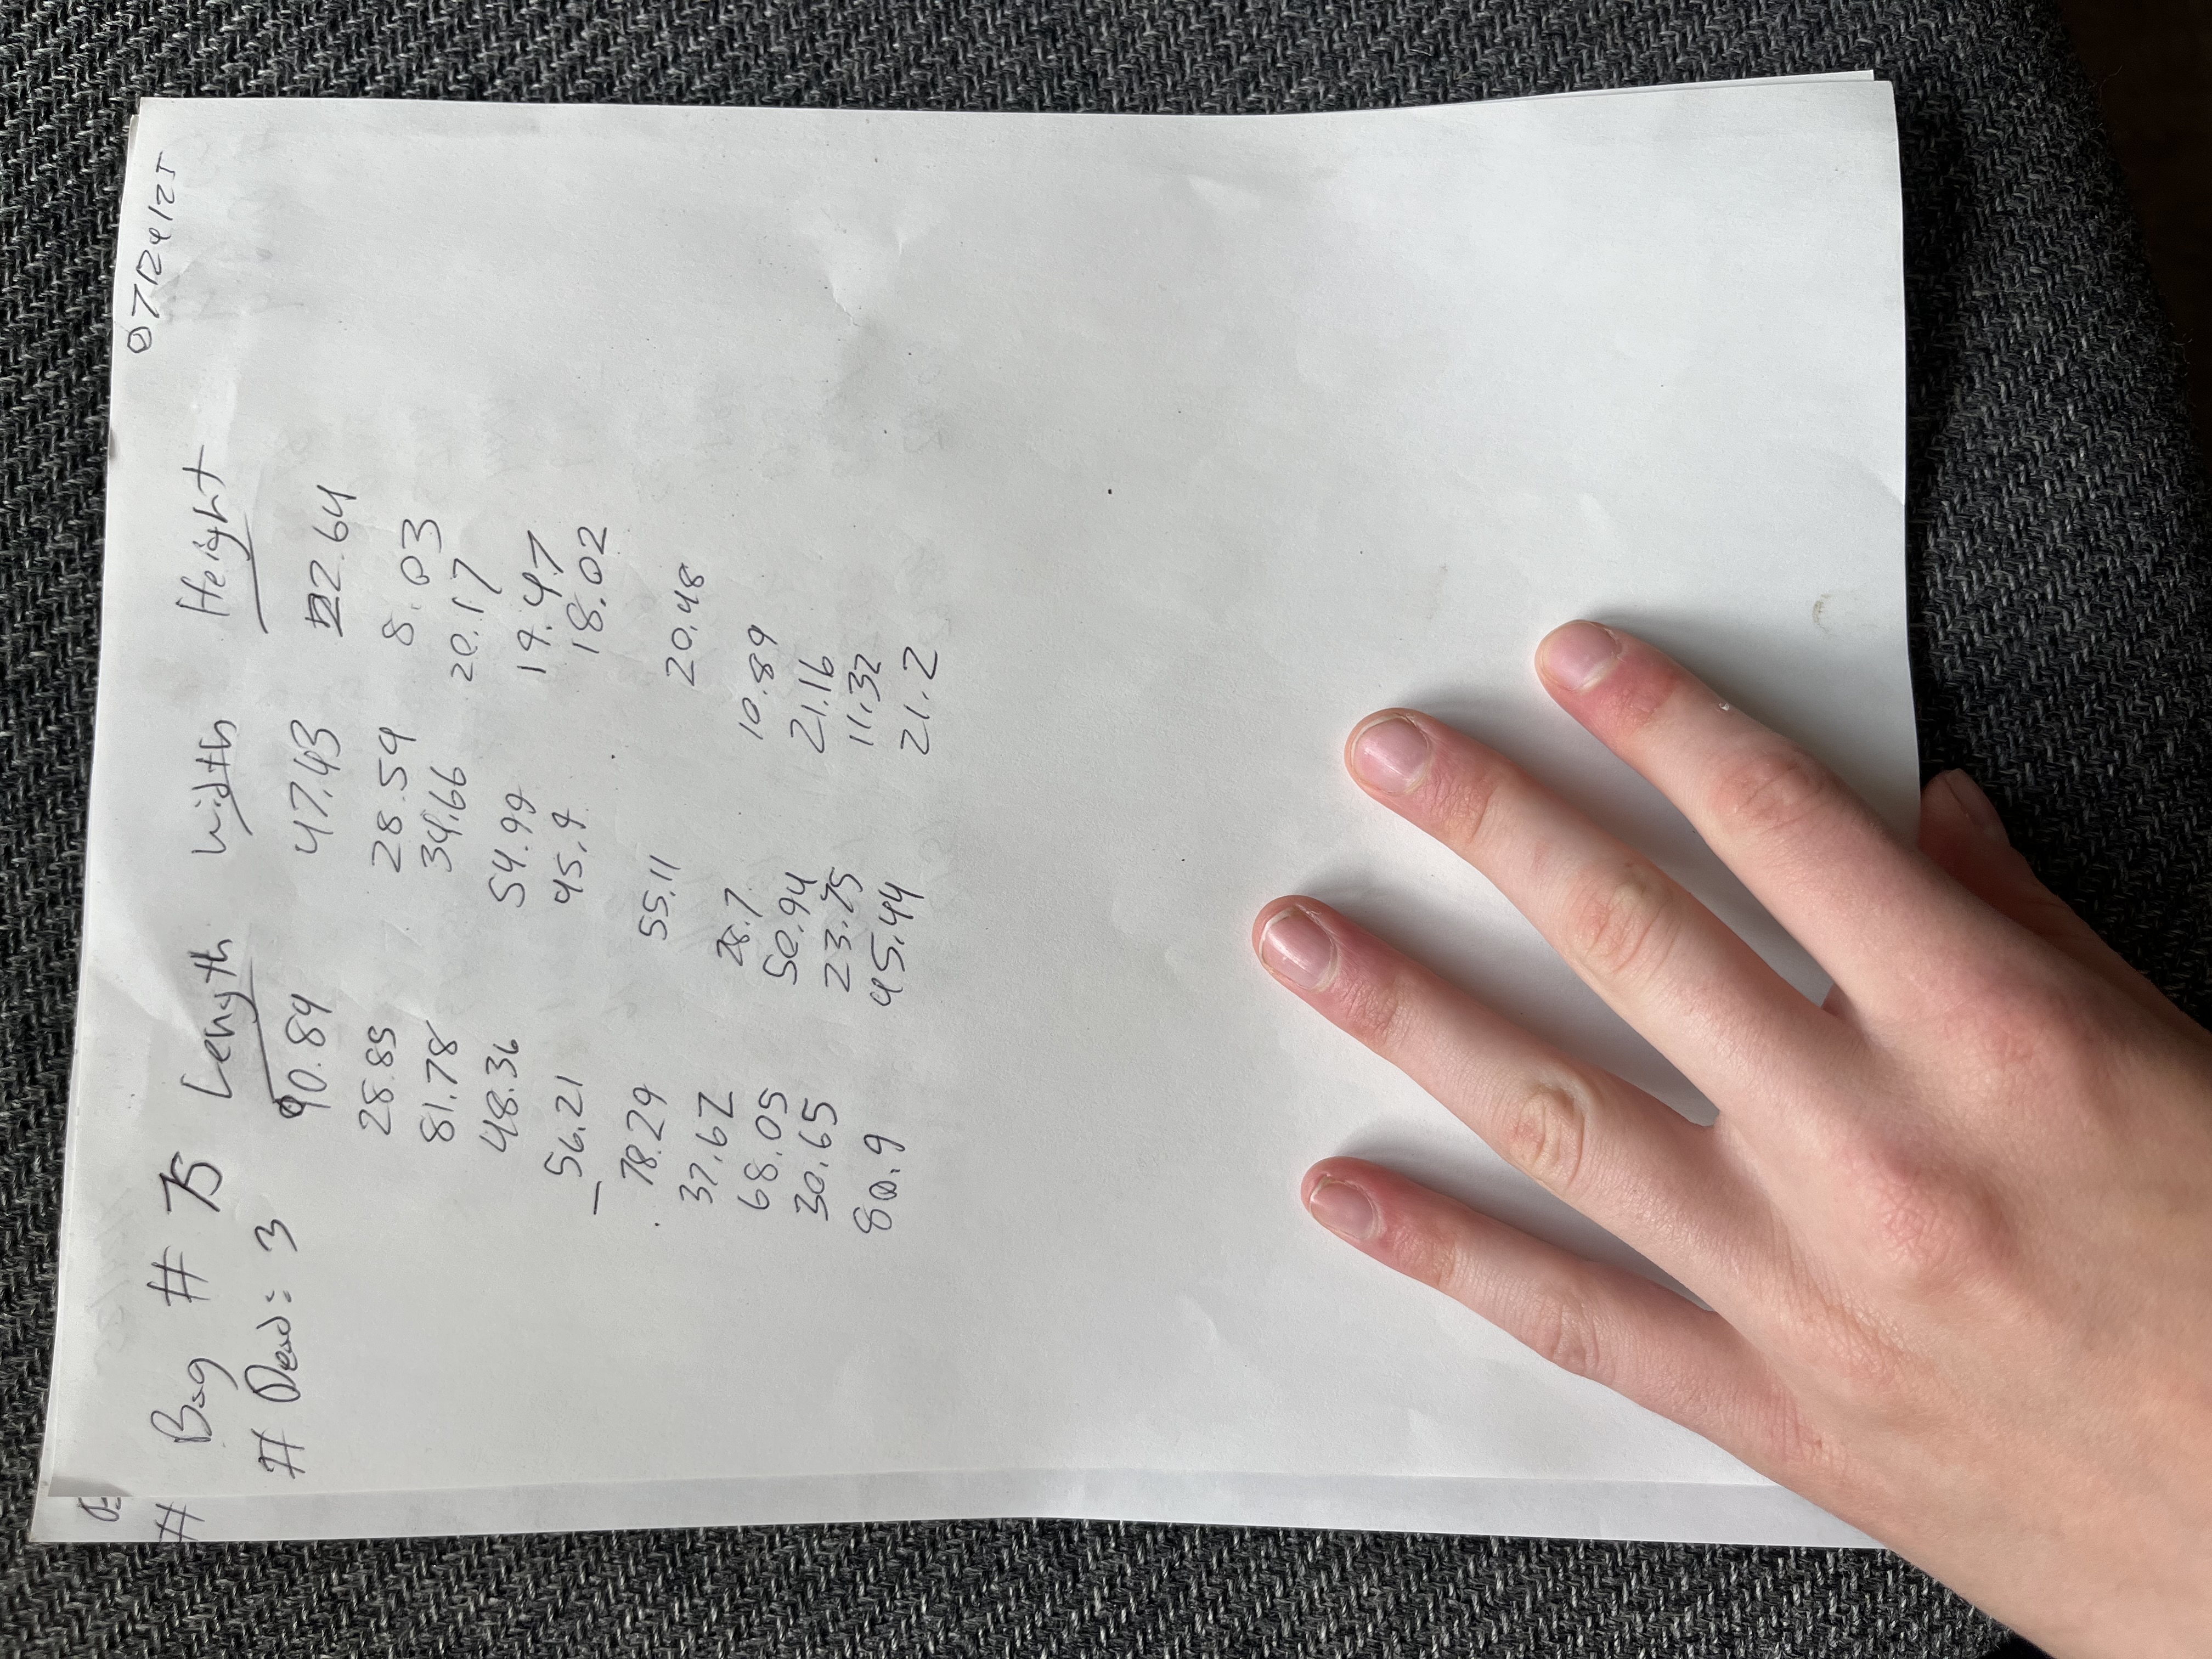 07/24/25
Bag # 75 Length Width Height
# Dead: 3
90.84 47.43 22.64
28.85 28.59 8.03
81.78 34.66 20.17
48.36 54.99 19.47
56.21 45.9 18.02
78.29 55.11 20.48
37.62 28.7 10.89
68.05 50.94 21.16
30.65 23.75 11.32
80.9 45.44 21.2